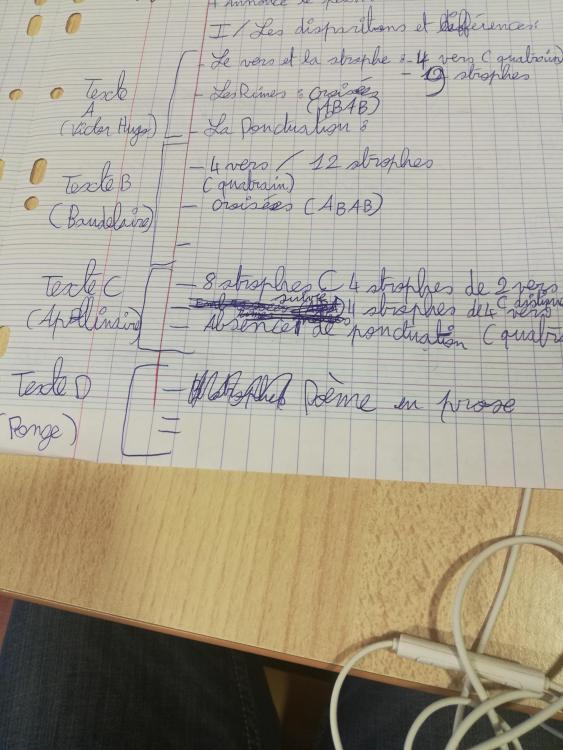 I / Les disparitions et différences:
- Le vers et la strophe : - 4 vers (quatrain)
- 9 strophes
Texte A (Victor Hugo)
- Les Rimes : croisées (ABAB)
- La Ponctuation :
- 4 vers / 12 strophes
(quatrain)
Texte B (Baudelaire)
- croisées (ABAB)
-
Texte C (Apollinaire)
- 8 strophes ( 4 strophes de 2 vers
4 strophes de 4 vers
- Absence de ponctuation (quatra
Texte D (Ponge)
- Poème en prose